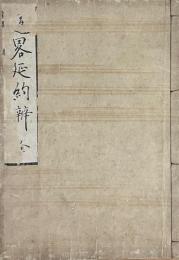 畧延約辨 全